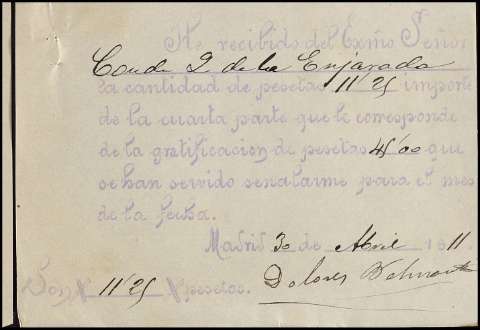 He recibido del Exmo Señor
Conde de la Enjarada
la cantidad de pesetas 11'25 importe
de la cuarta parte que le corresponde
de la gratificacion de pesetas 45'00 que
se han servido senalarme para el mes
de la fecha.
Madrid 30 de Abril 1911.
Son # 11'25 # pesetas.
Dolores Belmonte